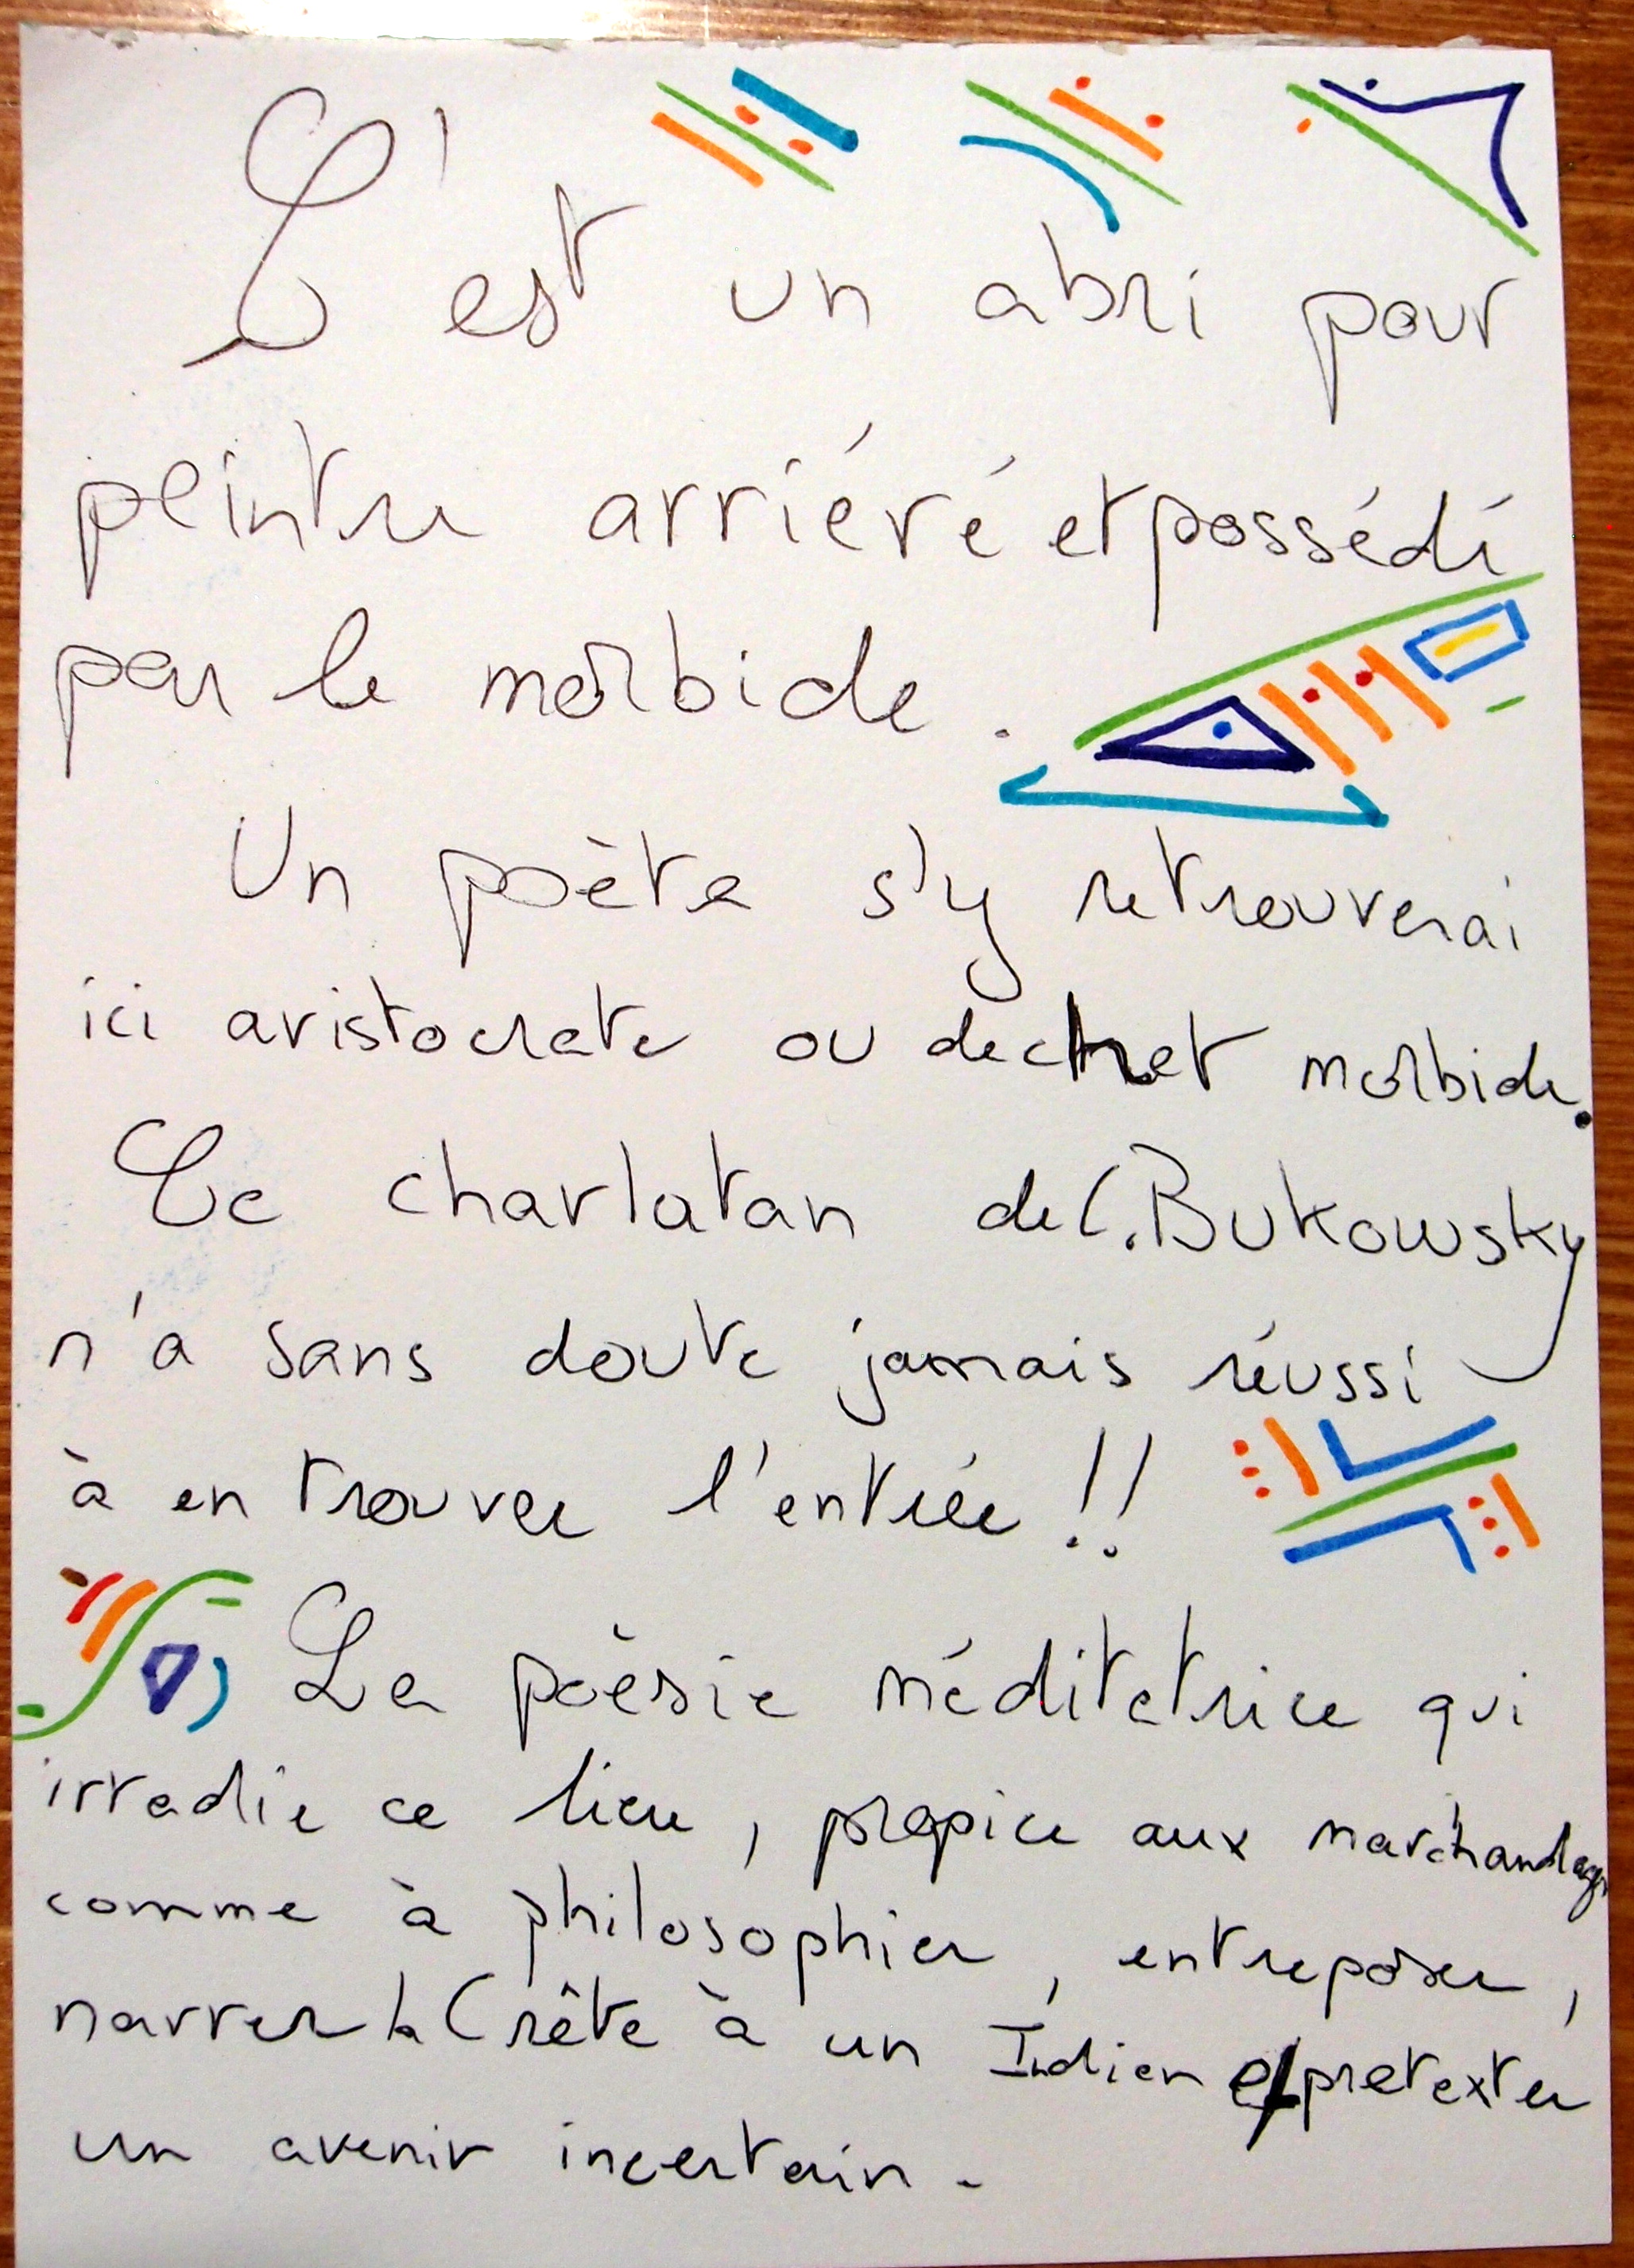 C'est un abri pour
peintre arriéré et possédé
par le morbide.
Un poète s'y retrouverai
ici aristocrate ou dechet morbide.
Ce charlatan de C. Bukowsky
n'a sans doute jamais réussi
à en trouver l'entrée !!
La poèsie méditatrice qui
irradie ce lieu, propice aux marchandages
comme à philosophier, entreposer,
narrer la Crête à un Indien et pretexter
un avenir incertain.